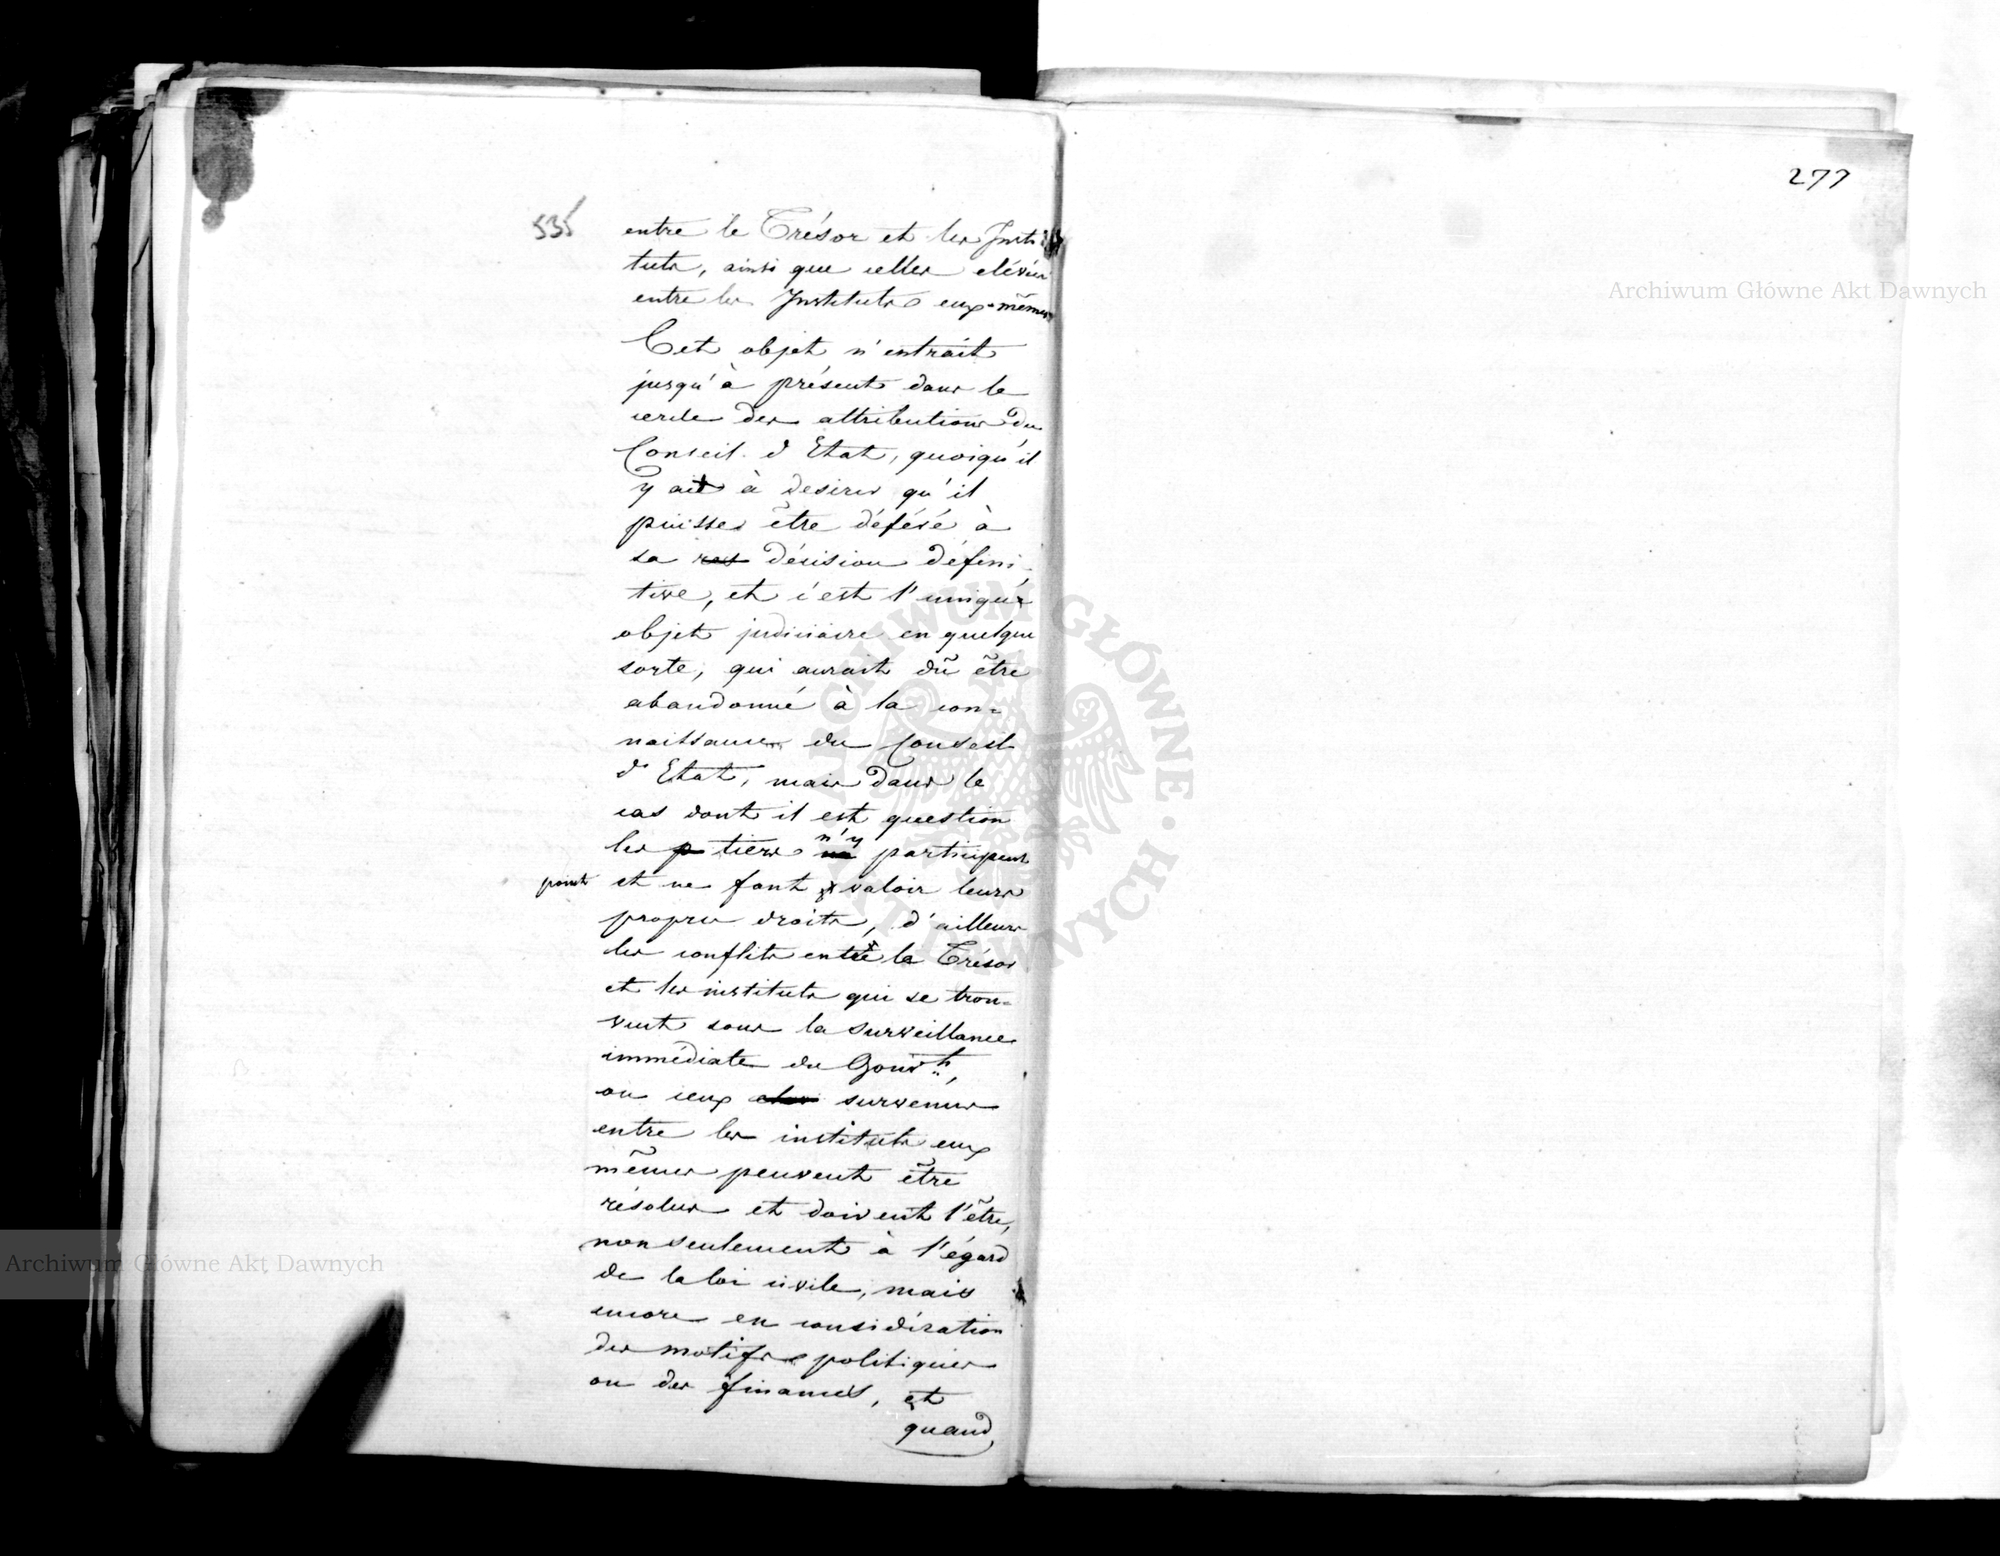 277
535
entre le Trésor et les Insti
tuts, ainsi que celles elévées
entre les Instituts eux-mêmes
Cet objet n'entrait
jusqu'à présent dans le
cercle des attributions du
Conseil d'Etat, quoiqu'il
y ait à desirer qu'il
puisse être déféré à
sa res décision défini-
tive, et c'est l'unique
objet judiciaire en quelque
sorte, qui aurait dû être
abandonné à la con=
naissance du Conseil
d'Etat, mais dans le
cas dont il est question
les p tiers n'y participent
point et ne font valoir leurs
propres droits, d'ailleurs
les conflits entre le Trésor
et les instituts qui se trou=
vent sous la surveillance
immédiate du Gouvt,
ou ceux survenus
entre les instituts eux
mêmes peuvent être
résolus et doivent l'être,
non seulement à l'égard
de la loi civile, mais
encore en considération
des motifs politiques
ou des finances, et
quand
Archiwum Główne Akt Dawnych
Archiwum Główne Akt Dawnych
ARCHIWUM GŁÓWNE AKT DAWNYCH